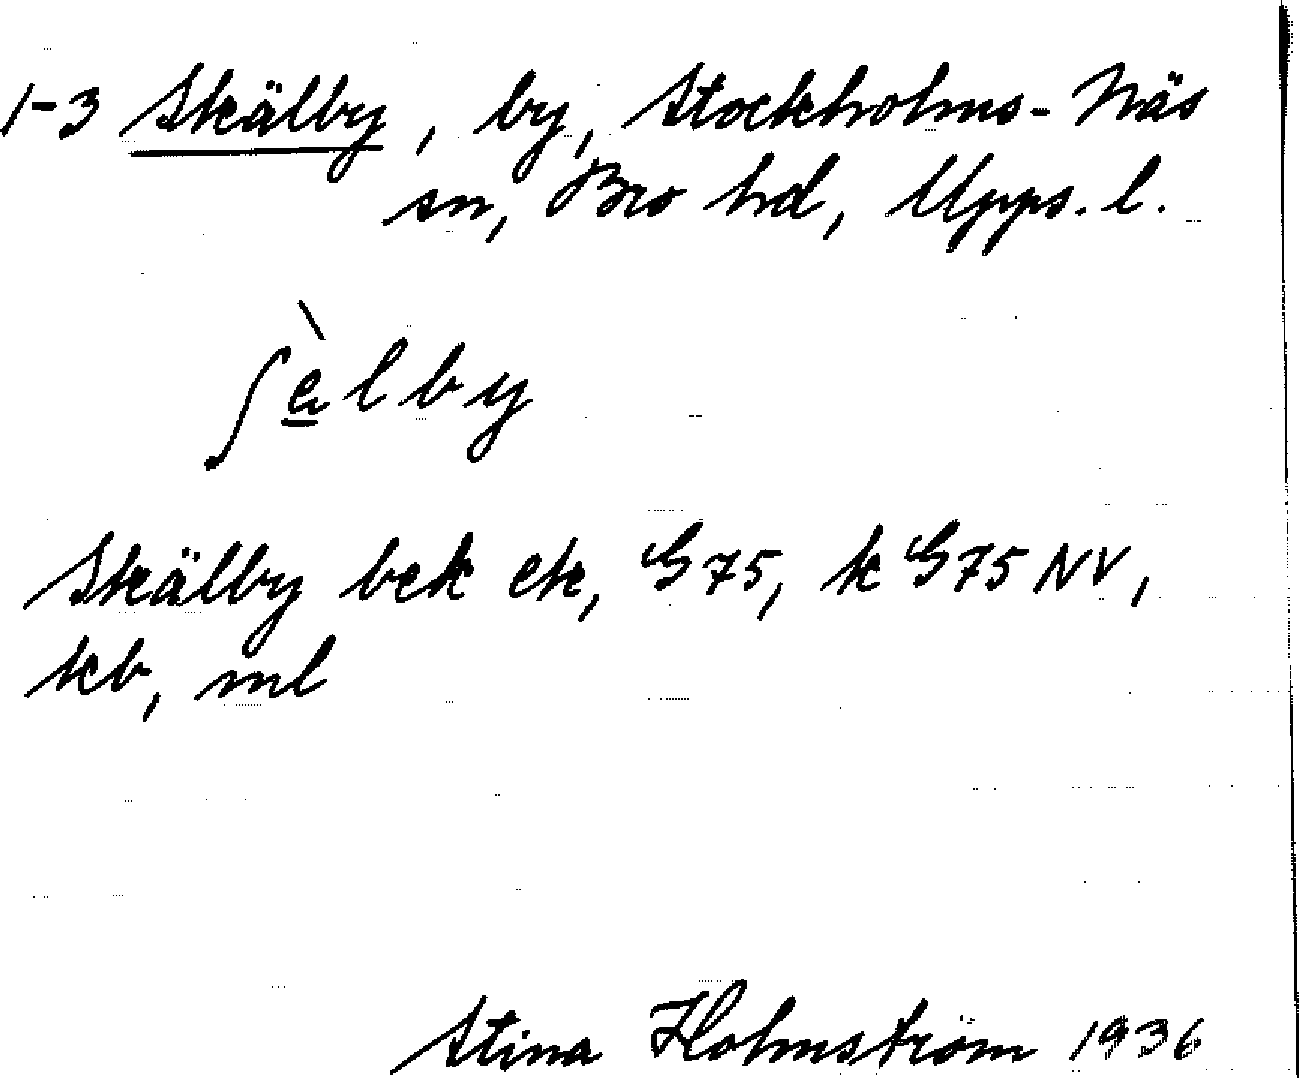 1-3 Skälby, by, Stockholms-Näs
sn, Bro hd, Upps. l.
ʃè̱lby
Skälby bek ek, G75, k G75 NV,
kb, ml
Stina Holmström 1936